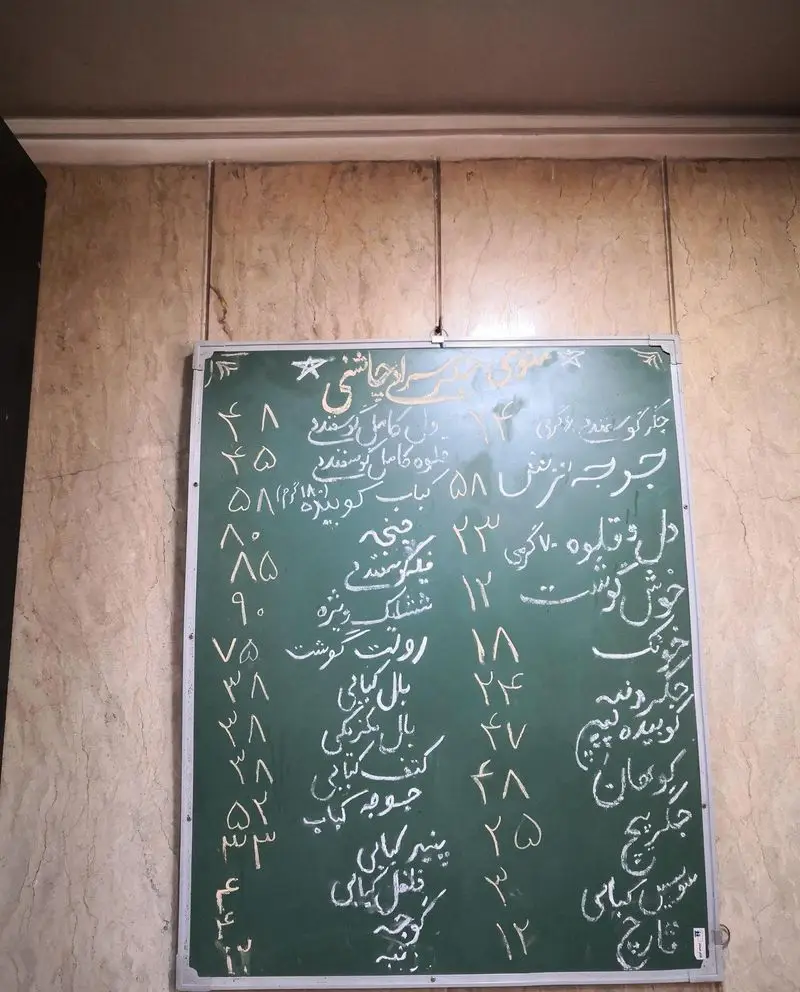 منوی جگرسرای چاشنی
جگر گوسفندی ۶۰ گرمی ۱۴
جوجه ترش ۵۸
دل و قلوه ۷۰ گرمی ۲۳
خوش گوشت ۱۲
خونک ۱۸
جگر و دنبه ۲۴
کوبیده پیچ ۴۷
کوهان ۴۸
جگر پیچ ۲۵
سوسیس کبابی ۳۰
قارچ ۱۲
دل کامل گوسفندی ۴۸
قلوه کامل گوسفندی ۴۵
کباب کوبیده (۱۸۰ گرم) ۵۸
چنجه ۸۰
فیله گوسفندی ۸۵
ششلیک ویژه ۹۰
روتت گوشت ۷۵
بال کبابی ۳۸
بال مکزیکی ۳۸
کتف کبابی ۳۸
جوجه کباب ۵۲
پنیر کبابی ۳۳
فلفل کبابی
گوجه
دنبه